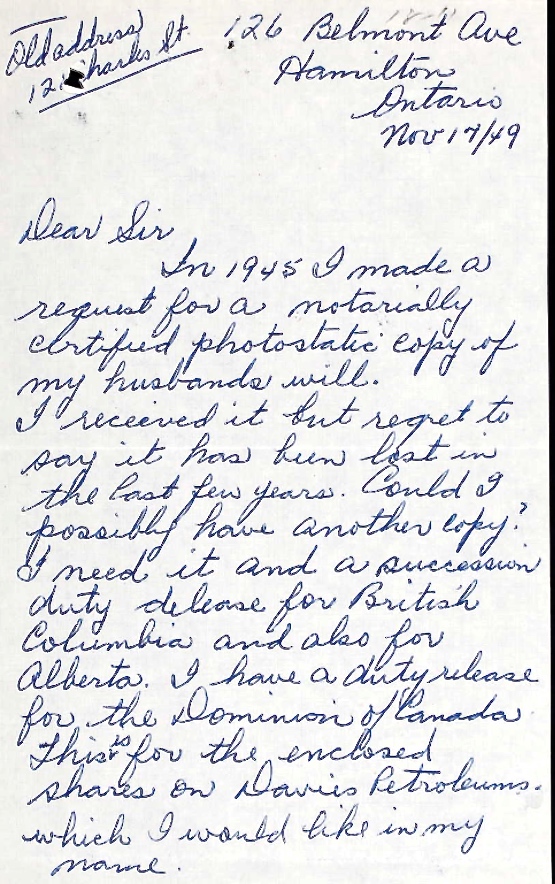 Old address
12 Charles St.
126 Belmont Ave
Hamilton
Ontario
Nov 17/49
Dear Sir
In 1945 I made a
request for a notarially
certified photostatic copy of
my husbands will.
I received it but regret to
say it has been lost in
the last few years. Could I
possibly have another copy?
I need it and a succession
duty delease for British
Columbia and also for
Alberta. I have a duty release
for the Dominion of Canada
This is for the enclosed
shares on Davies Petroleums.
which I would like in my
name.